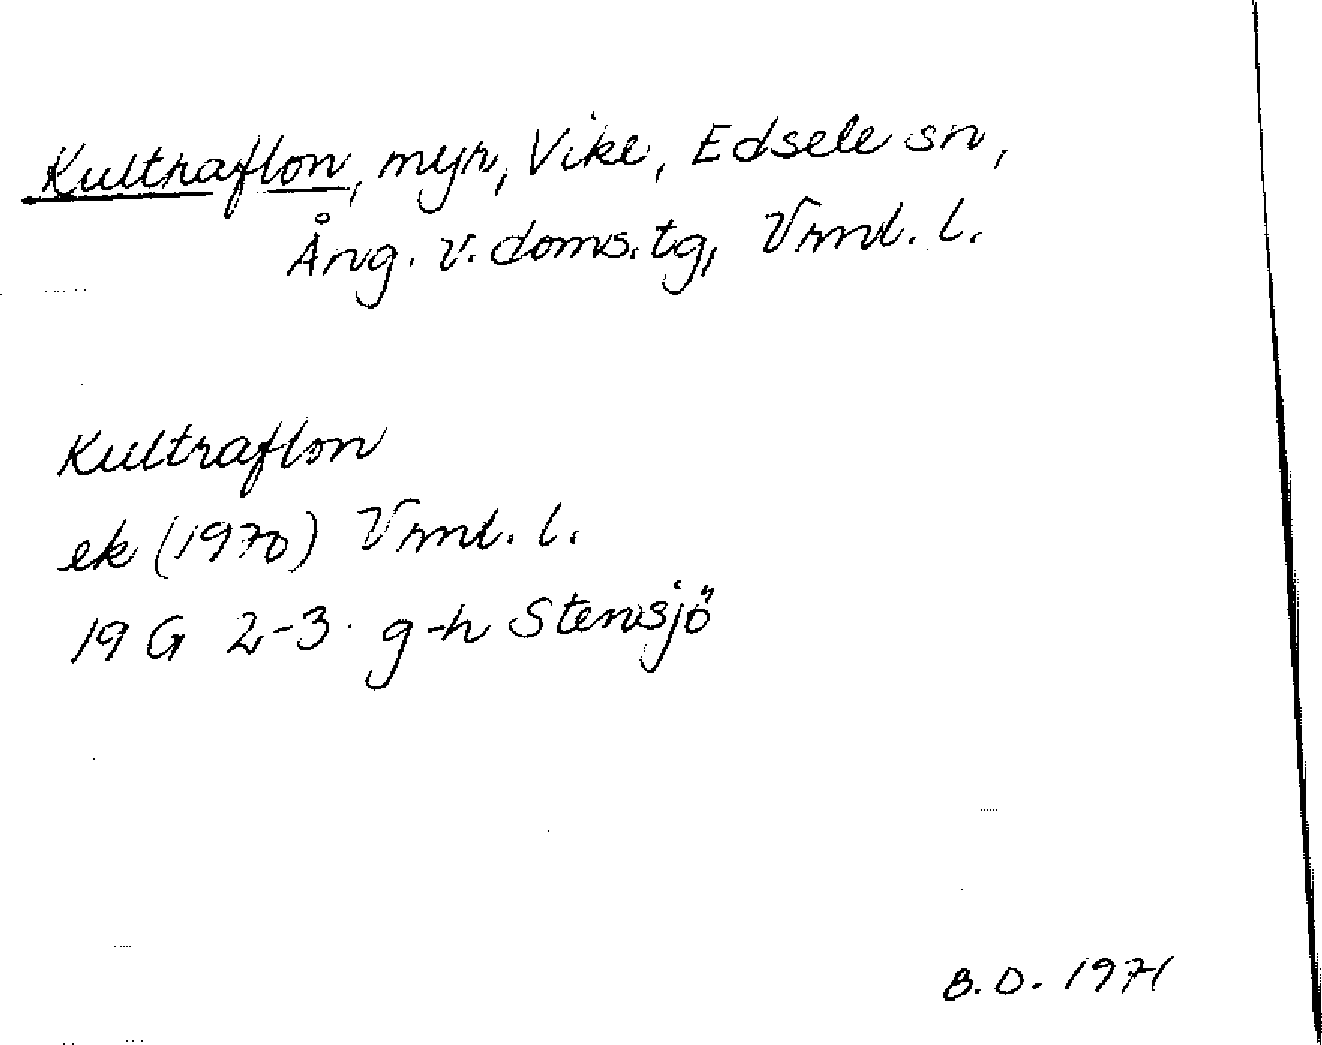 Kultraflon, myr, Vike, Edsele sn,
Ång. v. doms. tg, Vrnl. l.
Kultraflon
ek (1970) Vrnl. l.
19 G 2-3 g-h Stensjö
B.D. 1971